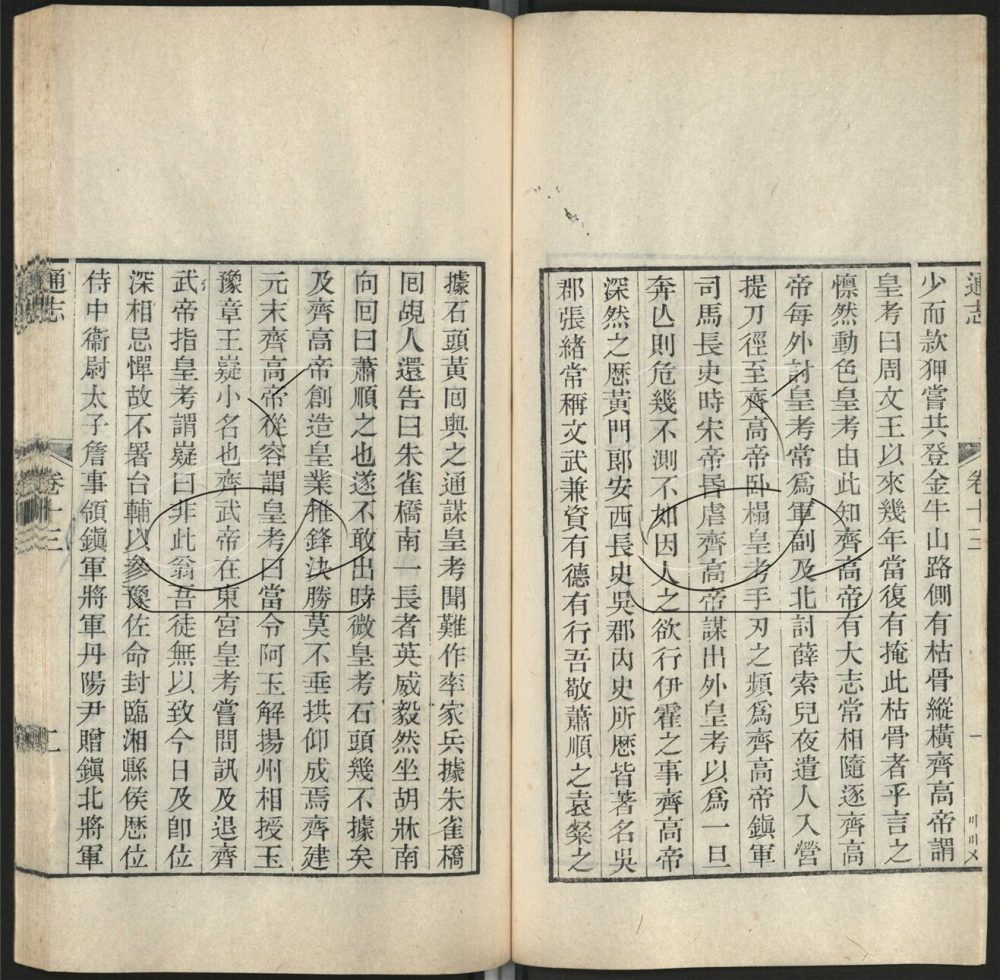 通志
卷十三
一
少而款狎嘗共登金牛山路側有枯骨縱橫齊高帝謂
皇考曰周文王以來幾年當復有掩此枯骨者乎言之
懍然動色皇考由此知齊高帝有大志常相隨逐齊高
帝每外討皇考常爲軍副及北討薛索兒夜遣人入營
提刀徑至齊高帝卧榻皇考手刃之頻爲齊高帝鎭軍
司馬長史時宋帝昏虐齊高帝謀出外皇考以爲一旦
奔亾則危幾不測不如因人之欲行伊霍之事齊高帝
深然之歷黃門郞安西長史吳郡內史所歷皆著名吳
郡張緒常稱文武兼資有德有行吾敬蕭順之袁粲之
據石頭黃回與之通謀皇考聞難作率家兵據朱雀橋
回覘人還告曰朱雀橋南一長者英威毅然坐胡牀南
向回曰蕭順之也遂不敢出時微皇考石頭幾不據矣
及齊高帝創造皇業推鋒決勝莫不垂拱仰成焉齊建
元末齊高帝從容謂皇考曰當令阿玉解揚州相授玉
豫章王嶷小名也齊武帝在東宮皇考嘗問訊及退齊
武帝指皇考謂嶷曰非此翁吾徒無以致今日及卽位
深相忌憚故不署台輔以參豫佐命封臨湘縣侯歷位
侍中衞尉太子詹事領鎭軍將軍丹陽尹贈鎭北將軍
通志
卷十三
二